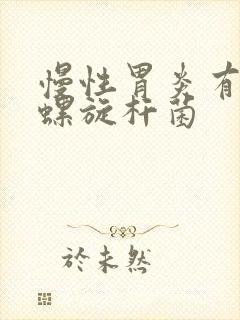 慢性胃炎有
螺旋杆菌
於未然